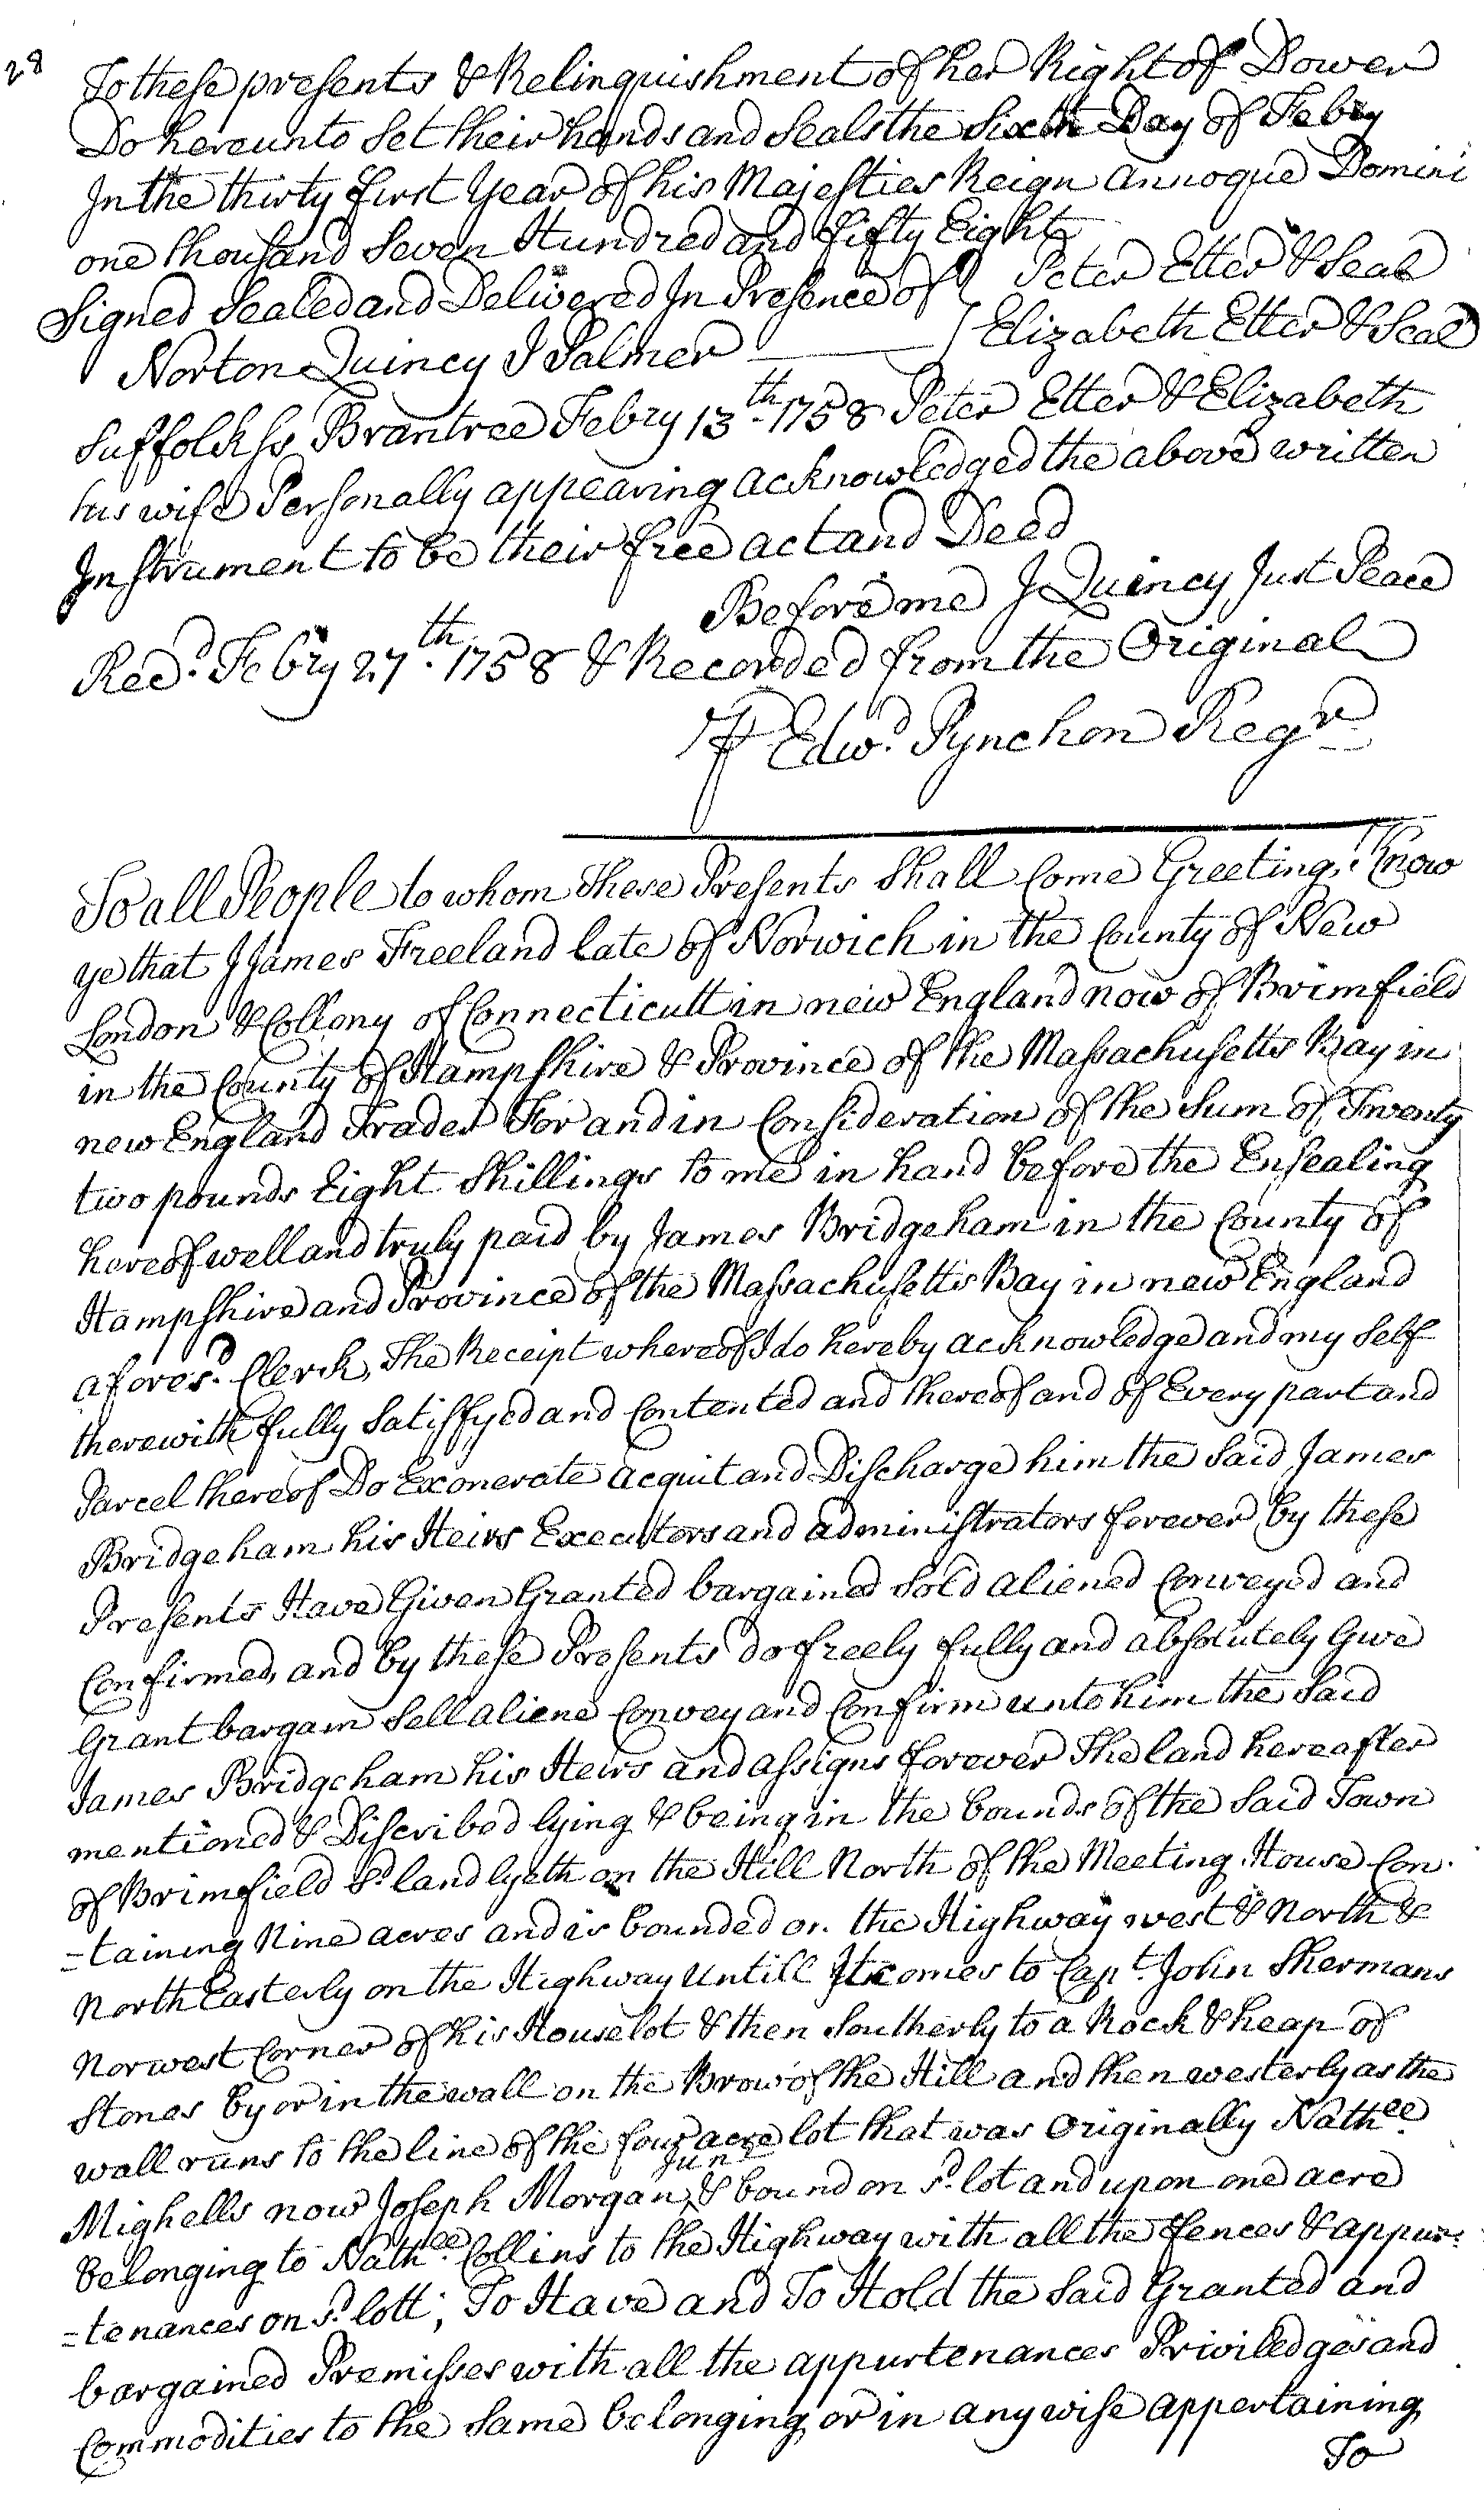 28
To these presents & Relinquishment of her Right of Dower
Do hereunto set their hands and Seals the Sixth Day of Febry
In the thirty first Year of his Majesties Reign Annoque Domini
one thousand Seven Hundred and fifty Eight
Signed Sealed and Delivered In Presence of } Peter Etter & Seal
Norton Quincy J Palmer } Elizabeth Etter & Seal
Suffolk ss Brantree Febry 13th. 1758 Peter Etter & Elizabeth
his wife Personally appearing acknowledged the above written
Instrument to be their free act and Deed
Before me J Quincy Just Peace
Recd. Febry 27th. 1758 & Recorded from the Original
⅌ Edwd. Pynchon Regr
To all People to whom These Presents Shall Come Greeting. Know
ye that I James Freeland late of Norwich in the County of New
London & Collony of Connecticutt in new England now of Brimfield
in the County of Hampshire & Province of the Massachusetts Bay in
new England Trader For and in Consideration of the Sum of Twenty
two pounds Eight Shillings to me in hand before the Ensealing
hereof well and truly paid by James Bridgeham in the County of
Hampshire and Province of the Massachusetts Bay in new England
aforesd. Clerk, The Receipt whereof I do hereby acknowledge and my Self
therewith fully Satisfyed and Contented and thereof and of Every part and
Parcel thereof Do Exonerate acquit and Discharge him the Said James
Bridgeham his Heirs Executors and administrators forever by these
Presents Have Given Granted bargained Sold aliened Conveyed and
Confirmed, and by these Presents do freely fully and absolutely Give
Grant bargain Sell aliene Convey and Confirm unto him the Said
James Bridgeham his Heirs and assigns forever The land hereafter
mentioned & Discribed lying & being in the bounds of the Said Town
of Brimfield Sd. land lyeth on the Hill North of the Meeting House Con-
=taining Nine acres and is bounded on the Highway west & North &
North Easterly on the Highway Untill It comes to Capt. John Shermans
Norwest Corner of his House lot & then Southerly to a Rock & heap of
Stones by or in the wall on the Brow of the Hill and then westerly as the
wall runs to the line of the four acre lot that was Originally Nathll.
Mighells now Joseph Morgan Junr & bound on Sd. lot and upon one acre
Belonging to Nathll. Collins to the Highway with all the fences & appur=
=tenances on Sd. lott; To Have and To Hold the Said Granted and
bargained Premisses with all the appurtenances Priviledges and
Commodities to the Same belonging or in any wise appertaining
To